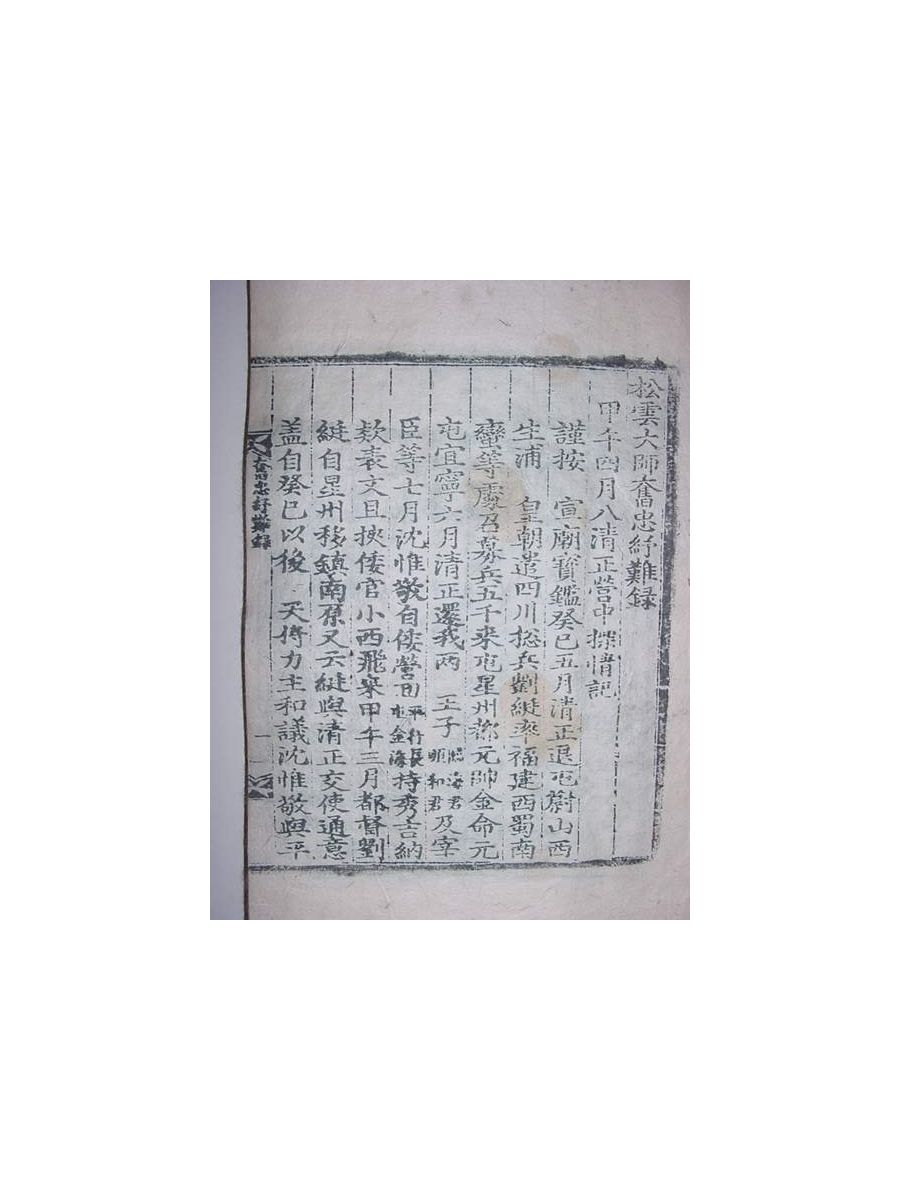 松雲大師奮忠紓難録
甲午四月入清正營中探情記
謹按 宣廟寶鑑癸巳五月清正退屯蔚山西
生浦 皇朝遣四川摠兵劉綎率福建西蜀南
蠻等處召募兵五千來屯星州都元帥金命元
屯宜寧六月清正還我两 王子臨海君順和君及宰
臣等七月沈惟敬自倭營回平行長屯金海持秀吉納
欵表文且挾倭官小西飛來甲午三月都督劉
綎自星州移鎮南原又云綎與清正交使通意
盖自癸巳以後 天將力主和議沈惟敬與平
奮忠紓難録
一